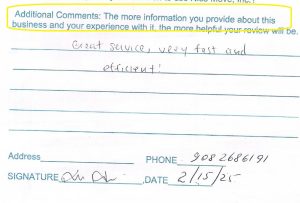 Additional Comments: The more information you provide about this
business and your experience with it, the more helpful your review will be.
Great service, very fast and
efficient!
Address
PHONE 908 2686191
SIGNATURE
,DATE 2/15/25